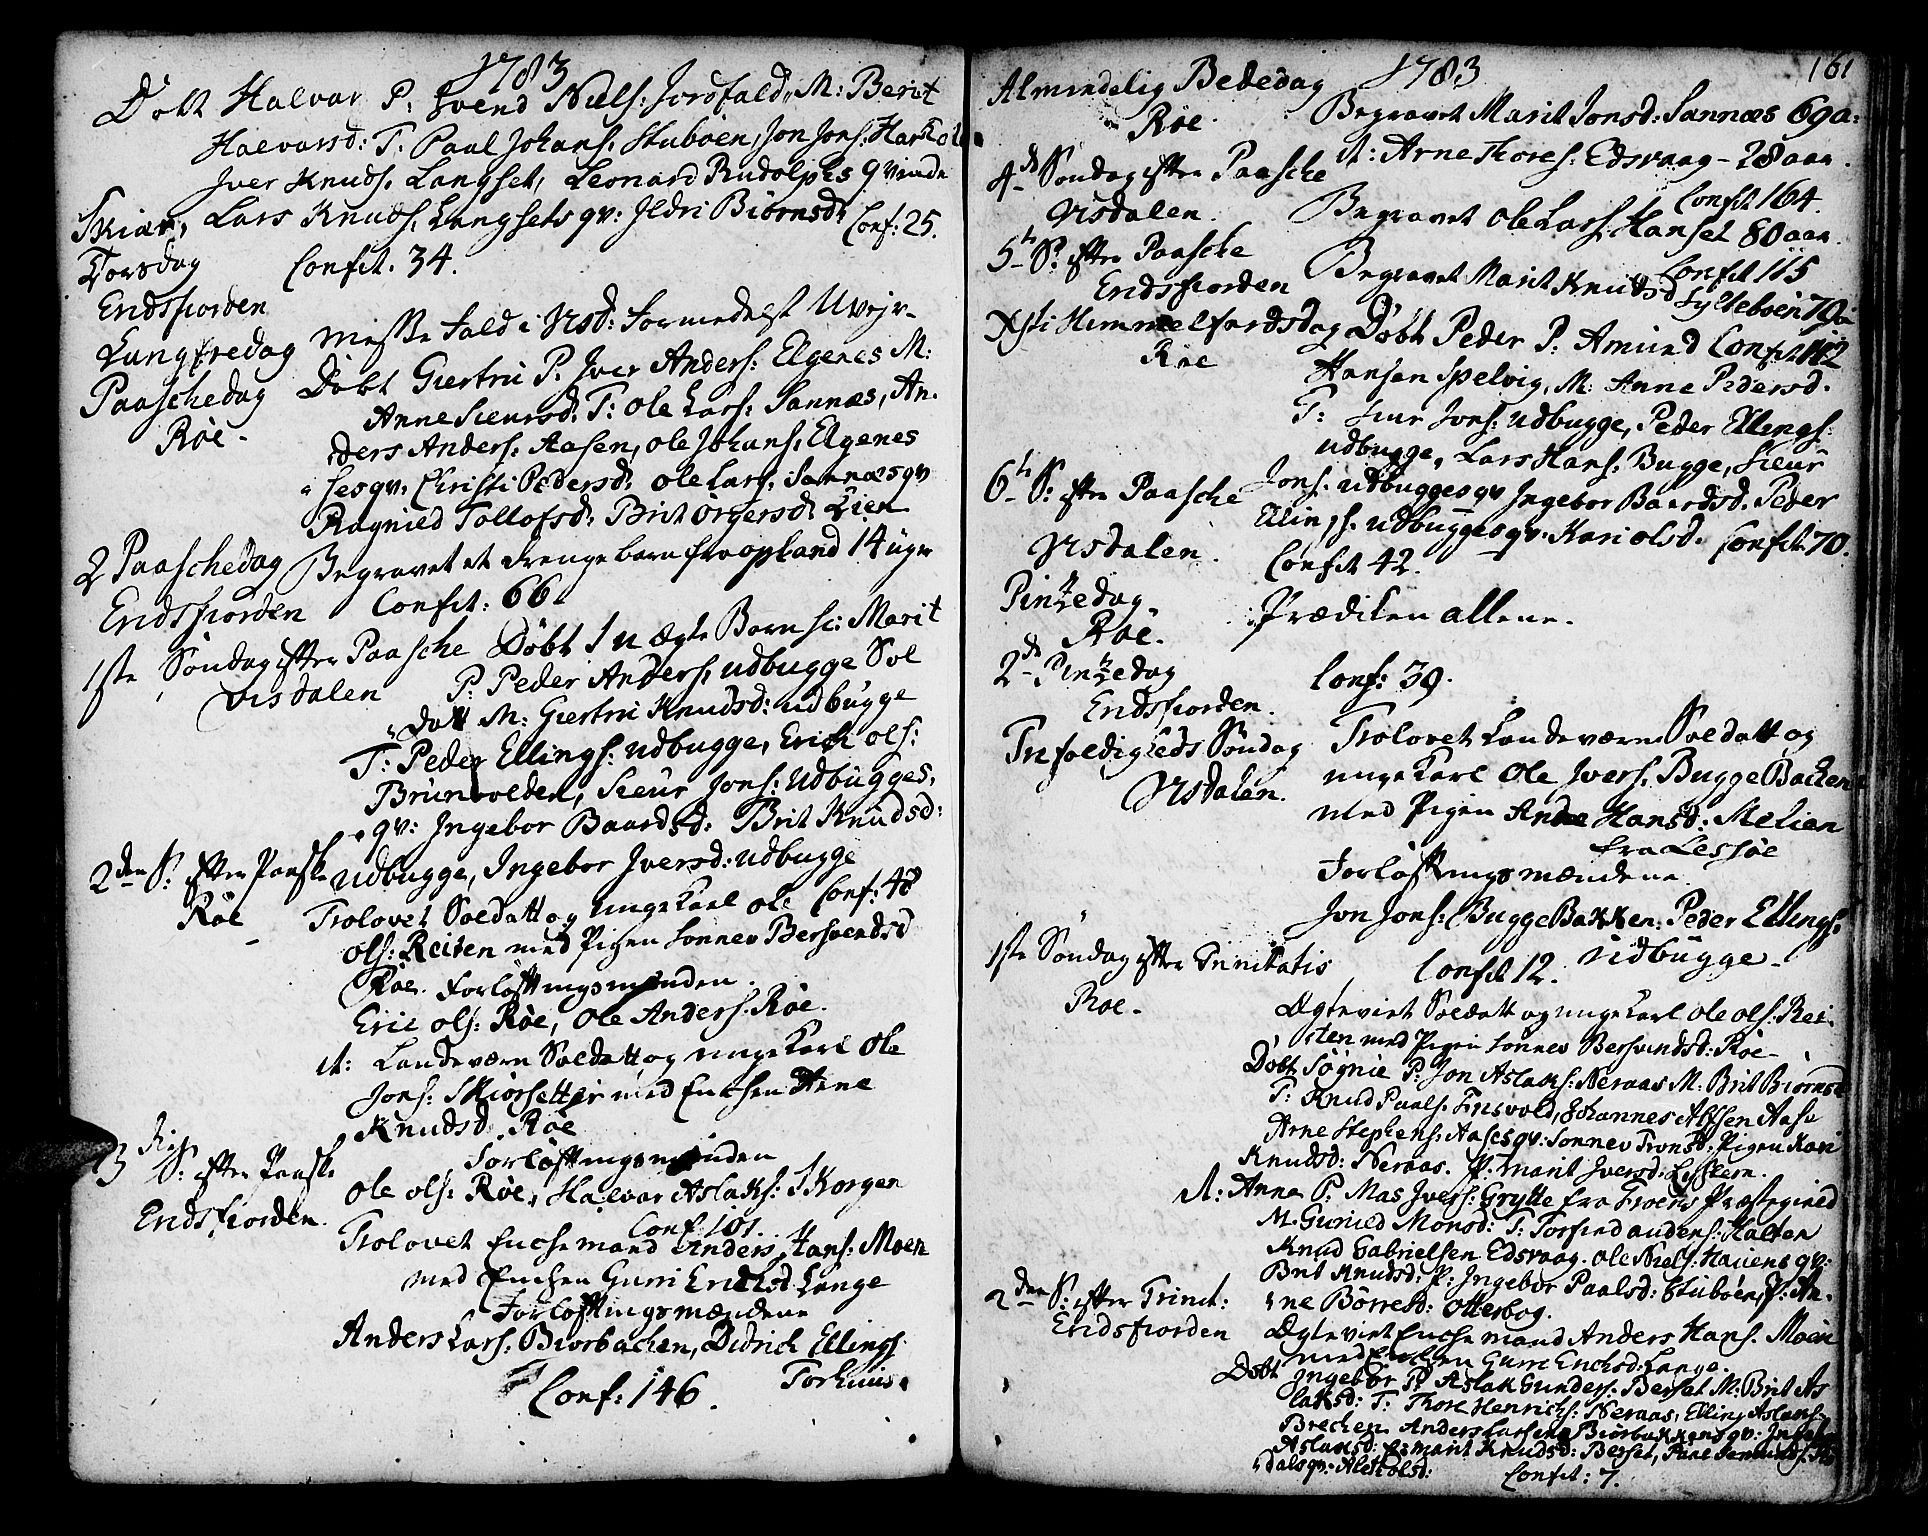 1783
Døbt Halvar P. Svend Niels: Jordfald, M: Berit
Halvarsd: T: Paul Johans: Stuboen, Jon Jons:
Iver Knuds. Langset, Leonard Rudolphs qvinde
Skiær, Lars Knuds. Langsets qv: Ildri Biørnsd.
Conf: 25.
Torsdag
Eridsfiorden
Confit. 34.
Langfredag
messe fald i Usd: formedelst Uvejr
Paaschedag
Røe.
Døbt Giertru P. Iver Anders: Elgenes M:
Anne Sieursd. T: Ole Lars: Sannæs, An-
ders Anders: Aasen, Ole Johans: Elgenes
ses qv: Christi Pedersd. Ole Lars: Sannæs qv
Ragnild Tollofsd. Brit Ørgersd. Lien
2 Paaschedag
Eridsfiorden
Begravet et drenge barn fra opland 14 uger
Confit: 66.
1ste Søndag efter Paasche
Visdalen
Døbt 1 uægte Barn sc: Marit
P: Peder Anders: udbugge Sol
datt M: Giertru Knudsd: udbugge
T: Peder Ellings: udbugge, Erich ols:
Brunvolden, Sieur Jons: udbugges,
qv: Ingebor Baardsd: Brit Knudsd:
udbugge, Ingebor Iversd: udbugge
Conf: 48
2den S: efter Paaske
Røe
Trolovet Soldatt og unge Karl ole
ols: Reiten med Pigen Sonnev Bersvendsd
Røe. Forløftningsmænden.
Eric ols: Røe, Ole Anders: Røe.
it: Landeværn Soldatt og unge Karl Ole
Jons: Skiorsetter med Enchen Arne
Knudsd Røe
Forløftningsmænden
Ole ols: Røe, Halvor Aslaks: Skorgen
Conf 101.
3die S: efter Paaske
Eridsfiorden.
Trolovet Enchemand Anders Hans: Moen
med Enchen Guri Erichsd. Lange
Forløftningsmændene
Anders Lars: Biorbachen, Didrich Ellings
Torhuus.
Conf: 146.
161
1783
Almindelig Bededag
Røe.
Begravet Marit Jonsd: Sannæs 69 a:
it: Arne Thores: Edsvaag - 28 aar.
Confit 164.
4de Søndag efter Paasche
Visdalen.
Begravet Ole Lars: Hanset 80 aar.
Confit 115
5te S: efter Paasche
Eridsfiorden
Begravet Marit Knudsd
Syltebøen 79 a
Confit 112
Xsti Himmelfardsdag
Røe
Døbt Peder P: Amund
Hansen Spelvig, M: Anne Pedersd.
T: Siur Jons: udbugge, Peder Ellings:
udbugge, Lars Hans: Bugge, Sieur
Jons: udbugges qv Ingebor Baardsd. Peder
Ellings: udbugges qv: Kari olsd. Confit 70.
6te S: efter Paasche
Visdalen.
Confit 42.
Pintzedag.
Røe.
Prædiken allene.
2de Pintzedag
Eridsfiorden.
Conf: 39.
Trefoldigheds Søndag
Visdalen.
Trolovet Landeværn Soldatt og
unge Karl Ole Ivers: Bugge Backen
med Pigen Anne Hansd: Melien
fra Lessøe
Forløftningsmændene
Jon Jons: Bugge Bakken: Peder Ellings:
udbugge.
Confit 12.
1ste Søndag efter Trinitatis
Røe.
Ægteviet Soldatt og unge Karl ole ols: Rei-
ten med Pigen Sonnev Bersvendsd: Røe
Døbt Søgnie P: Jon Aslaks: Neraas M: Brit Biornsd
T: Knud Paals: Frisvold, Johannes Alfsen Aase
Arne Stephens: Aases qv: Sonnev Tronsd: Pigen Kari
Knudsd: Neraas. P. Marit Iversd:
it: Anne P: Mas Ivers: Grytte fra Froens Præstegield
M. Guried Monsd: T: Torfind audens: Halten
Knud Gabrielsen Edsvaag. Ole Niels: Hauens qv:
Brit Knudsd: P: Ingebor Paalsd: Stuboen, P: An-
ne Børresd: Otterbog.
2den S: efter Trinit:
Eridsfiorden
Ægteviet Enchemand Anders Hans. Moen
med Enchen Gurre Erichsd: Lange.
Døbt Ingebor P: Aslak Gunders: Berset M: Brit As
laksd: T: Thore Henrichs: Neraas, Elling Aslaks:
Brechen Anders Larsens Biorbakkens qv:
Aslaksd: P: marit Knudsd: Berset, Paal
dals qv: Alet olsd:
Confit: 7.